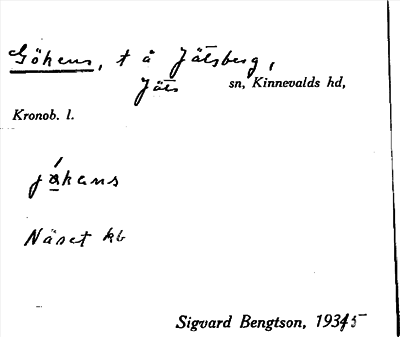 Göhens, t å Jätsberg,
Jäts sn, Kinnevalds hd,
Kronob. l.
jåhens
Näset kb
Sigvard Bengtson, 1935